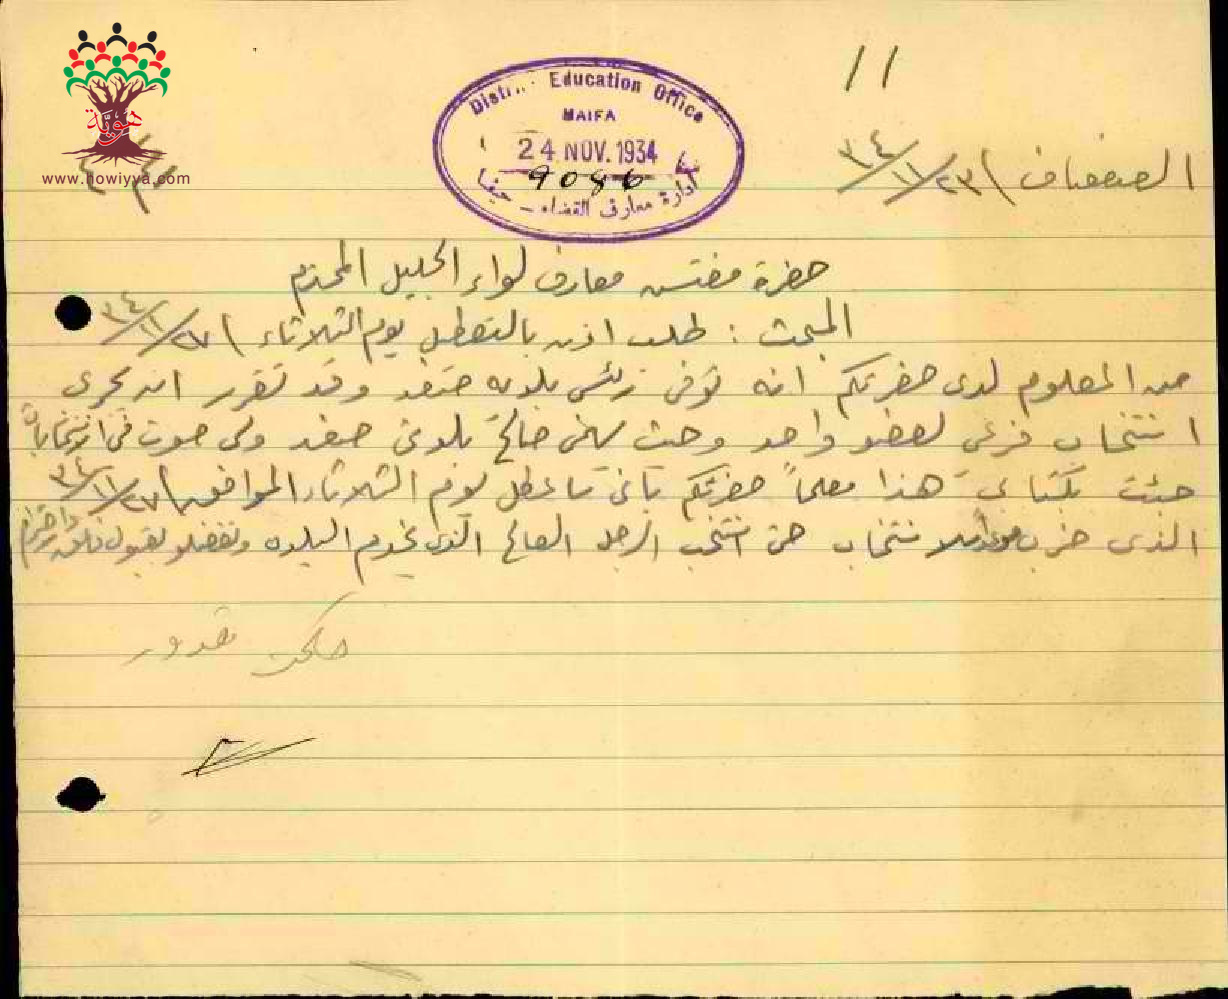 هويّة
www.howiyya.com
١١
District Education Office
HAIFA
24 NOV. 1934
9086
ادارة معارف القضاء - حيفا
الصفصاف ٢٣/١١/٣٤
حضرة مفتش معارف لواء الجليل المحترم
المبحث : طلب اذن بالتعطيل يوم الثلاثاء ٢٧/١١/٣٤
من المعلوم لدى حضرتكم انه توفى رئيس بلدية صفد وقد تقرر ان يجرى
انتخاب فرعي لعضو واحد وحيث يهمني صالح بلدتي صفد ولي صوت في الانتخابات
جئت بكتابي هذا معلماً حضرتكم بأني سأعطل يوم الثلاثاء الموافق ٢٧/١١/٣٤
الذى ضرب موعداً للانتخاب حتى انتخب الرجل الصالح الذي يخدم البلدة وتفضلوا بقبول فائق احترامي
قدورد